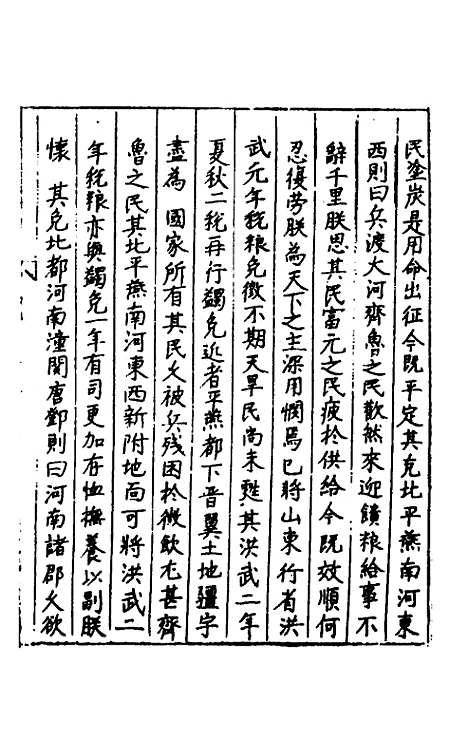 民塗炭是用命出征今既平定其克北平燕南河東
西則曰兵渡大河齊魯之民歡然來迎饋粮給事不
辭千里朕思其民富元之民疲扵供給今既效順何
忍復勞朕為天下之主深用憫焉已將山東行省洪
武元年税粮免徵不期天旱民尚未甦其洪武二年
夏秋二税再行蠲免近者平燕都下晋冀土地疆宇
盡為 國家所有其民久被兵残困扵徴歛尤甚齊
魯之民其北平燕南河東西新附地面可將洪武二
年税粮亦與蠲免一年有司更加存恤撫養以副朕
懷 其克北都河南潼関唐鄧則曰河南諸郡久欲